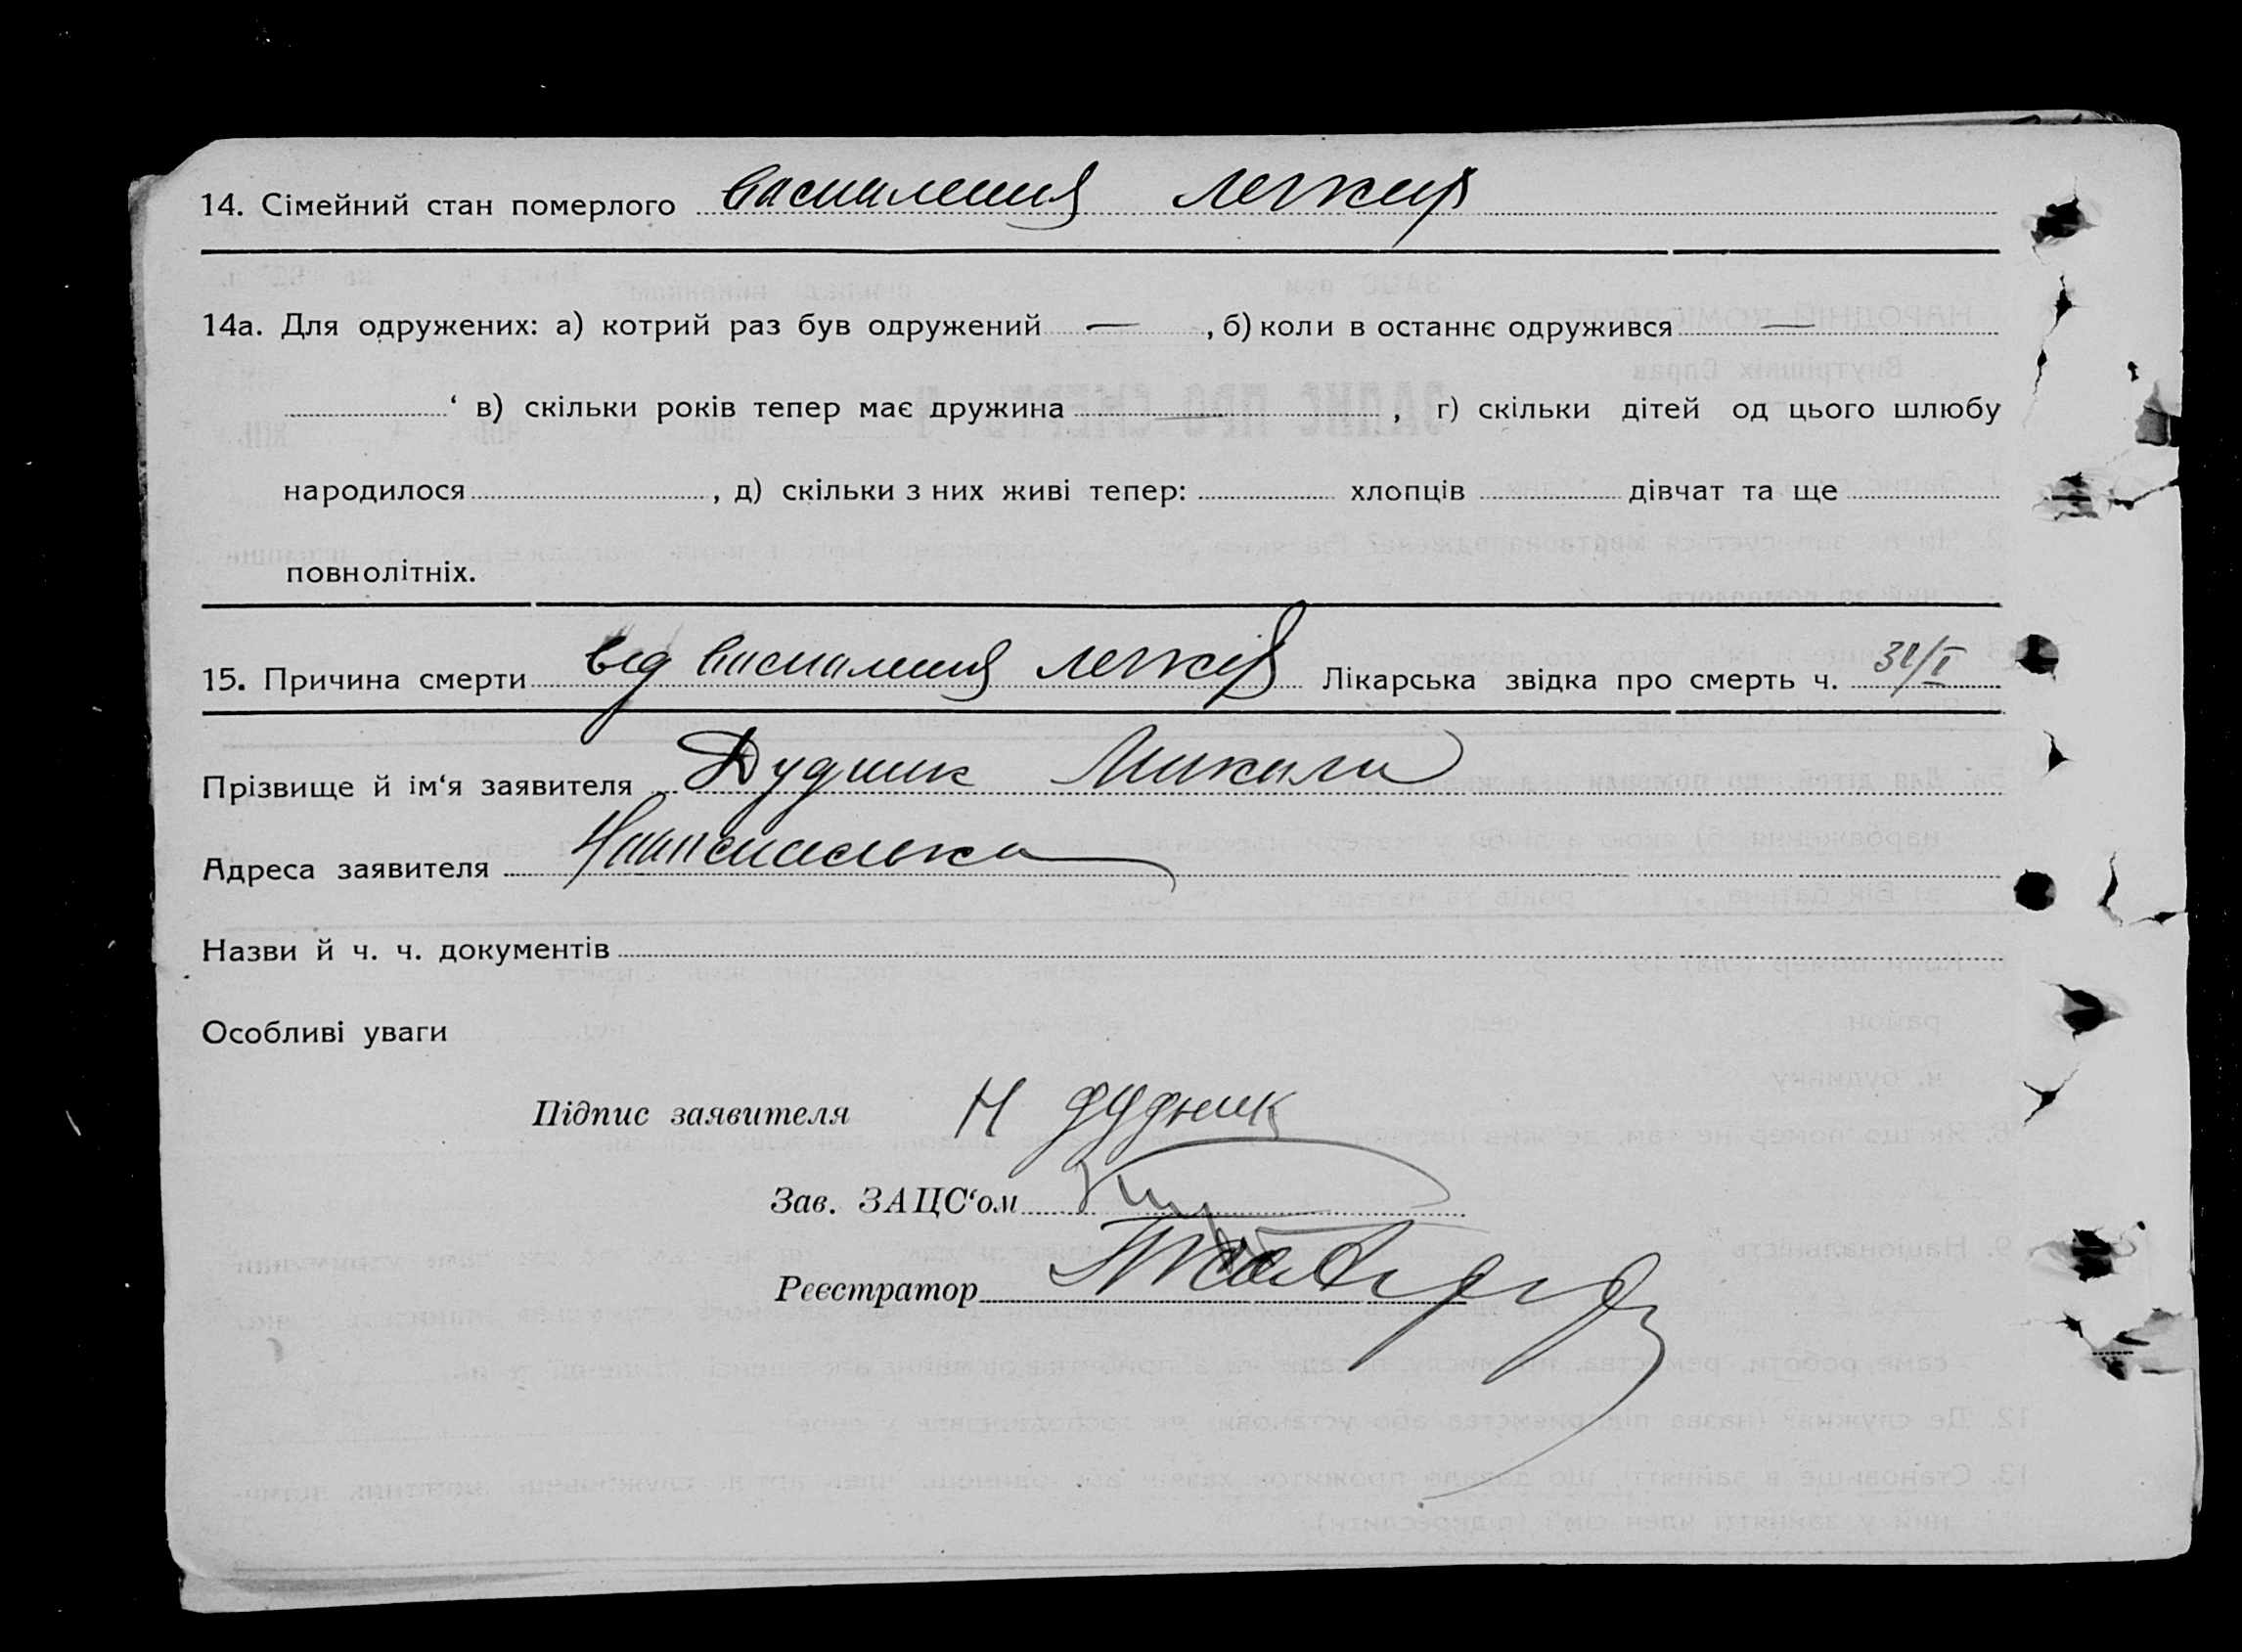 14. Сімейний стан померлого воспаления легких
14а. Для одружених: а) котрий раз був одружений — , б) коли в останнє одружився —
‘ в) скільки років тепер має дружина , г) скільки дітей од цього шлюбу
народилося , д) скільки з них живі тепер: хлопців дівчат та ще
повнолітніх.
15. Причина смерти від воспаления легких Лікарська звідка про смерть ч. 31/I
Прізвище й ім‘я заявителя Дудник Микола
Адреса заявителя
Назви й ч. ч. документів
Особливі уваги
Підпис заявителя Н дудник
Зав. ЗАЦС‘ом
Реєстратор